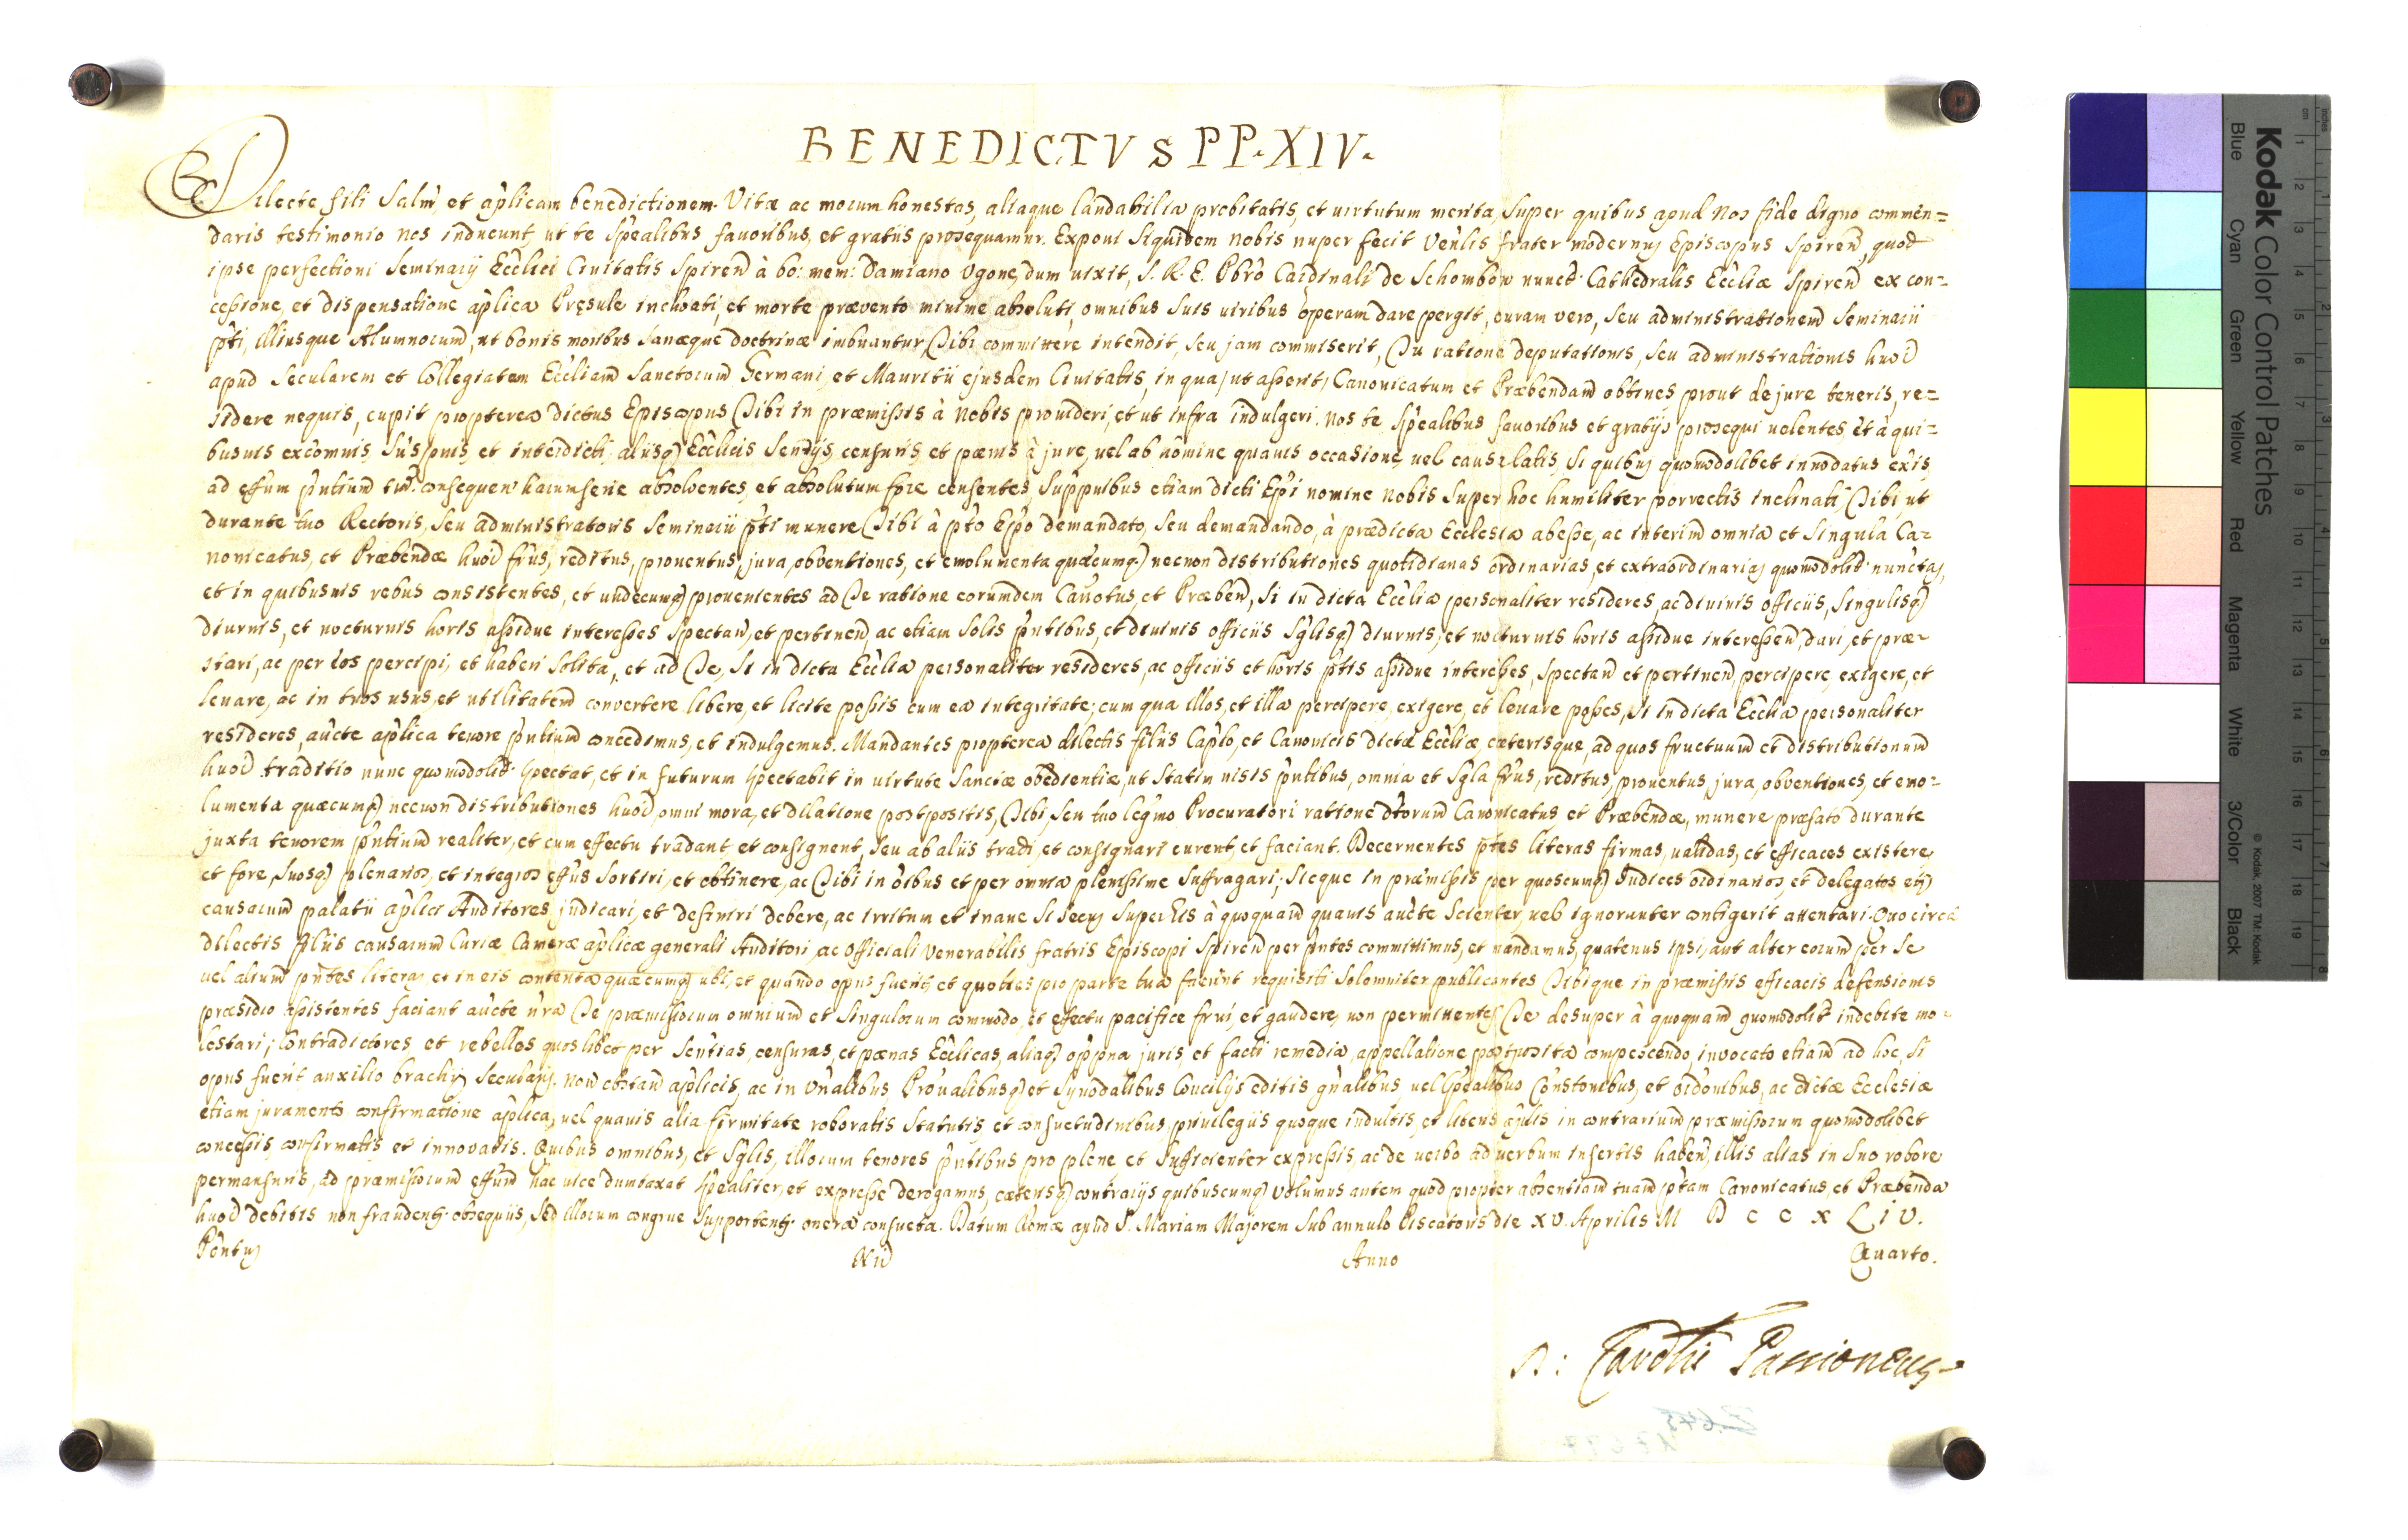 BENEDICTVS PP. XIV.
Dilecte fili Salm̃, et ap̃licam benedictionem. Vitæ ac morum honestas, aliaque laudabilia probitatis, et uirtutum merita, super quibus apud Nos fide digno commen=
daris testimonio nos inducunt, ut te sp̃ealibus fauoribus, et gratiis prosequamur. Exponi siquidem nobis nuper fecit Veñlis frater modernus Episcopus Spireñ, quod
ipse perfectioni Seminarij Ecc̃lici Ciuitatis Spireñ à bo: mem: Damiano Vgone, dum uixit, S. R. E. Pbrõ Cardinali de Schombõrn nuncũ Cathedralis Ecc̃liæ Spireñ ex con=
cessione, et dispensatione ap̃lica Præsule inchoati, et morte præuento minime absoluti, omnibus suis uiribus operam dare pergit, curam vero, seu administrationem Seminarii
p̃ti, illiusque Alumnorum, ut bonis moribus sanæque doctrinæ imbuantur, Tibi committere intendit, seu jam commiserit, Tu ratione deputationis, seu administrationis hm̃oi
apud secularem et Collegiatam Ecc̃liam Sanctorum Germani, et Mauritii ejusdem Ciuitatis, in qua, ut asserit, Canonicatum et Præbendam obtines prout de jure teneris, re=
sidere nequis, cupit propterea dictus Episcopus Tibi in præmissis à Nobis prouideri, et ut infra indulgeri. Nos te sp̃ealibus fauoribus et gratijs prosequi uolentes, et à qui=
busuis excomnis, suspnis, et interdicti, aliisq̃ Ecc̃licis sentijs, censuris, et pænis à jure, uel ab homine quauis occasione, uel causa latis, si quibus quomodolibet innodatus exis,
ad effum p̃ntium tm̃ consequeñ harum serie absoluentes, et absolutum fore censentes, Suppnibus etiam dicti Ep̃i nomine Nobis super hoc humiliter porrectis inclinati, Tibi, ut
durante tuo Rectoris, seu administratoris Seminarii p̃ti munere Tibi à p̃to Ep̃o demandato, seu demandando, à prædicta Ecclesia abesse, ac interim omnia et singula Ca=
nonicatus, et Præbendæ hm̃oi frus, reditus, prouentus, jura, obventiones, et emolumenta quæcumq̃, necnon distributiones quotidianas ordinarias, et extraordinarias quomodolib̃t nunc̃tas,
et in quibusuis rebus consistentes, et undecumq̃ prouenientes ad Te ratione eorumdem Cañotus, et Præbeñ, si in dicta Ecc̃lia personaliter resideres, ac diuinis officiis, singulisq̃
diurnis, et nocturnis horis assidue interesses spectañ, et pertineñ, ac etiam solis p̃ntibus, et diuinis officiis s̃glisq̃ diurnis, et nocturnis horis assidue interesseñ, dari, et præ=
stari, ac per eos percipi, et haberi solita, et ad Te, si in dicta Ecc̃lia personaliter resideres, ac officiis et horis p̃tis assidue interesses, spectañ et pertineñ, percipere, exigere, et
leuare, ac in tuos usus, et utilitatem convertere libere, et licite possis cum ea integritate, cum qua illos, et illa percipere, exigere, et leuare posses, si in dicta Ecc̃lia personaliter
resideres, auc̃te ap̃lica tenore p̃ntium concedimus, et indulgemus. Mandantes propterea dilectis filiis Cap̃lo, et Canonicis dictæ Ecc̃liæ, cæterisque, ad quos fructuum et distributionum
hm̃oi traditio nunc quomodolib̃t spectat, et in futurum spectabit in uirtute Sanctæ obedientiæ, ut statim uisis p̃ntibus, omnia et s̃gla frus, reditus, prouentus, jura, obventiones, et emo=
lumenta quæcumq̃ necnon distributiones hm̃oi, omni mora, et dilatione postpositis, Tibi, seu tuo leg̃mo Procuratori ratione dtorum Canonicatus et Præbendæ, munere præfato durante
juxta tenorem p̃ntium realiter, et cum effectu tradant et consignent, seu ab aliis tradi, et consignari curent, et faciant. Decernentes p̃tes literas firmas, ualidas, et efficaces existere,
et fore, suosq̃ plenarios, et integros effus sortiri, et obtinere, ac Tibi in oĩbus et per omnia plenissime suffragari, sicque in præmissis per quoscumq̃ Judices ordinarios et delegatos et̃
causarum palatii ap̃lici Auditores judicari, et definiri debere, ac irritum et inane si secus super his à quoquam quauis auc̃te scienter, uel ignoranter contigerit attentari. Quo circa
dilectis filiis causarum Curiæ Cameræ ap̃licæ generali Auditori, ac Officiali Venerabilis fratris Episcopi Spireñ per p̃ntes committimus, et mandamus, quatenus ipsi, aut alter eorum per se
uel alium p̃ntes literas, et in eis contenta quæcumq̃ ubi, et quando opus fuerit, et quoties pro parte tua fuerint requisiti solemniter publicantes Tibique in præmissis efficacis defensionis
præsidio assistentes faciant auc̃te ñra Te præmissorum omnium et singulorum commodo, et effectu pacifice frui, et gaudere, non permittentes Te desuper à quoquam quomodolib̃t indebite mo=
lestari; Contradictores et rebelles quoslibet per señtias, censuras, et pænas Ecc̃licas, aliaq̃ opp̃na juris et facti remedia, appellatione postposita compescendo, invocato etiam ad hoc, si
opus fuerit auxilio brachij secularis. Non obstañ ap̃licis, ac in Uñalibus, Prouãlibusq̃ et Synodalibus Concilijs editis gñalibus, uel sp̃ealibus Constõnibus, et ordõnibus, ac dictæ Ecclesiæ
etiam juramento confirmatione ap̃lica, uel quauis alia firmitate roboratis statutis et consuetudinibus, priuilegiis quoque indultis, et literis ap̃licis in contrarium præmissorum quomodolibet
concessis, confirmatis et innovatis. Quibus omnibus, et s̃glis, illorum tenores p̃ntibus pro plene et sufficienter expressis, ac de uerbo ad uerbum insertis habeñ, illis alias in suo robore
permansuris, ad præmissorum effum hac uice dumtaxat sp̃ealiter, et expresse derogamus, cæterisq̃ contrarijs quibuscumq̃. Volumus autem quod propter absentiam tuam p̃tam Canonicatus, et Præbenda
hm̃oi debitis non fraudent̃ obsequiis, sed illorum congrue supportent̃ onera consueta. Datum Romæ apud S. Mariam Majorem sub annulo Piscatoris die XV. Aprilis M D C C X L I V.
Pontus Nri Anno Quarto.
D: Cardlis Passioneus